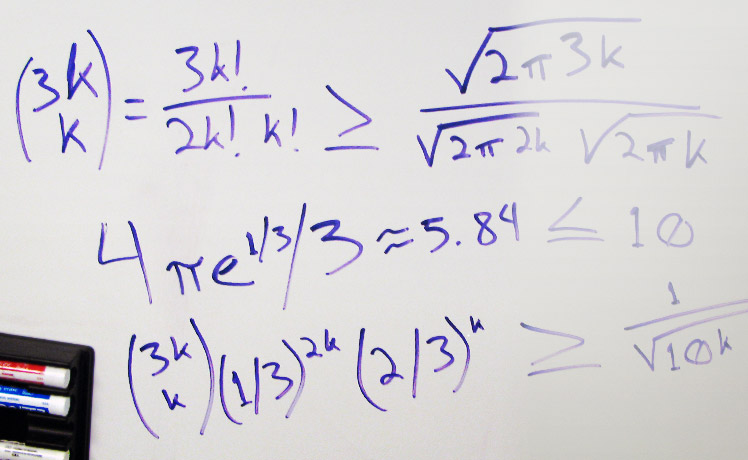 (3k k) = 3k! / 2k! k! ≥ √2π3k / √2π2k √2πk
4πe^{1/3}/3 ≈ 5.84 ≤ 10
(3k k)(1/3)^{2k} (2/3)^k ≥ 1/√10k